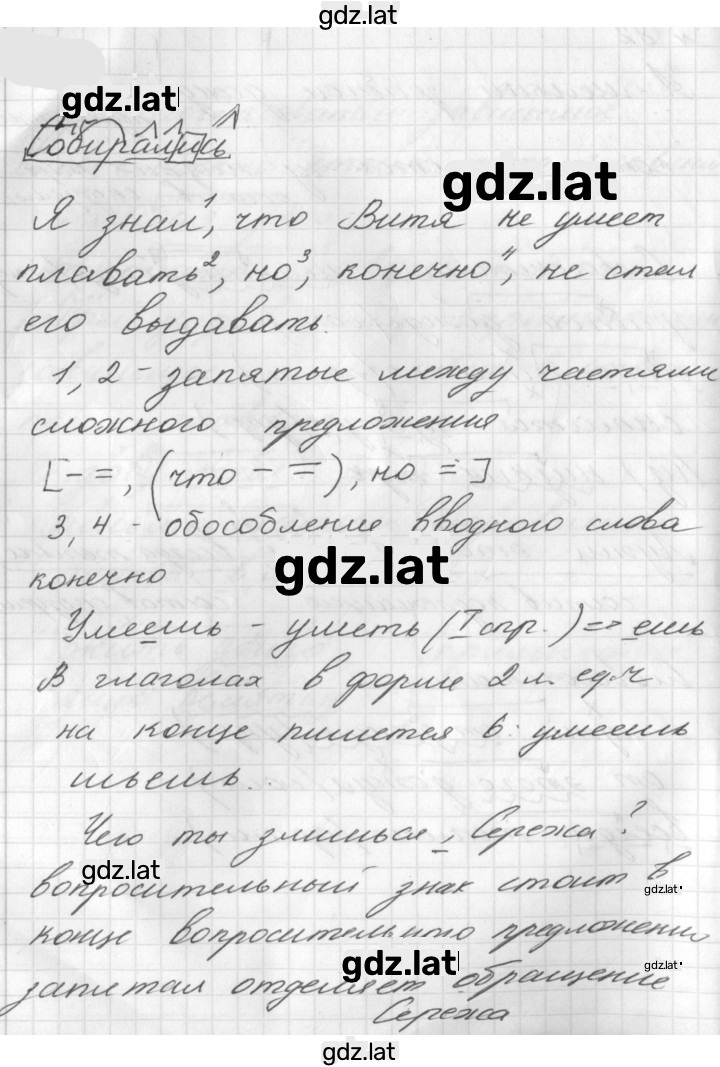 gdz.lat
gdz.lat
Собирались
gdz.lat
Я знал¹, что Витя не умеет
плавать², но³, конечно⁴, не стал
его выдавать.
1, 2 - запятые между частями
сложного предложения
[- =, (что - =), но =]
3, 4 - обособление вводного слова
конечно
gdz.lat
Умеешь - уметь (I спр.) => ешь
В глаголах в форме 2 л. ед.ч
на конце пишется ь: умеешь
шьешь.
Чего ты злишься, Сережа?
gdz.lat
вопросительный знак стоит в
gdz.lat
конце вопросительно предложении
gdz.lat
gdz.lat
запятая отделяет обращение
Сережа
gdz.lat